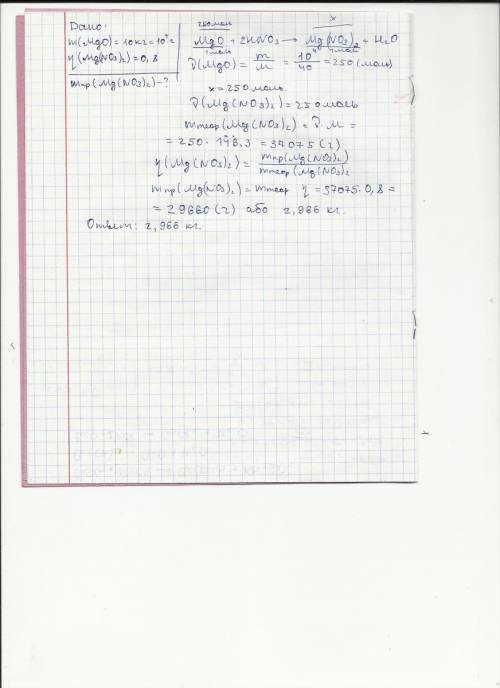 Дано:
m(MgO) = 10 кг = 10⁴ г
η(Mg(NO3)2) = 0,8
mпр(Mg(NO3)2) - ?
250 моль x
MgO + 2HNO3 → Mg(NO3)2 + H2O
1 моль 1 моль
ν(MgO) = m/M = 10⁴/40 = 250 (моль)
x = 250 моль.
ν(Mg(NO3)2) = 250 моль
mтеор(Mg(NO3)2) = ν · M =
= 250 · 148.3 = 37075 (г)
η(Mg(NO3)2) = mпр(Mg(NO3)2) / mтеор(Mg(NO3)2
mпр(Mg(NO3)2) = mтеор η = 37075 · 0,8 =
= 29660 (г) або 2,966 кг.
Ответ: 2,966 кг.